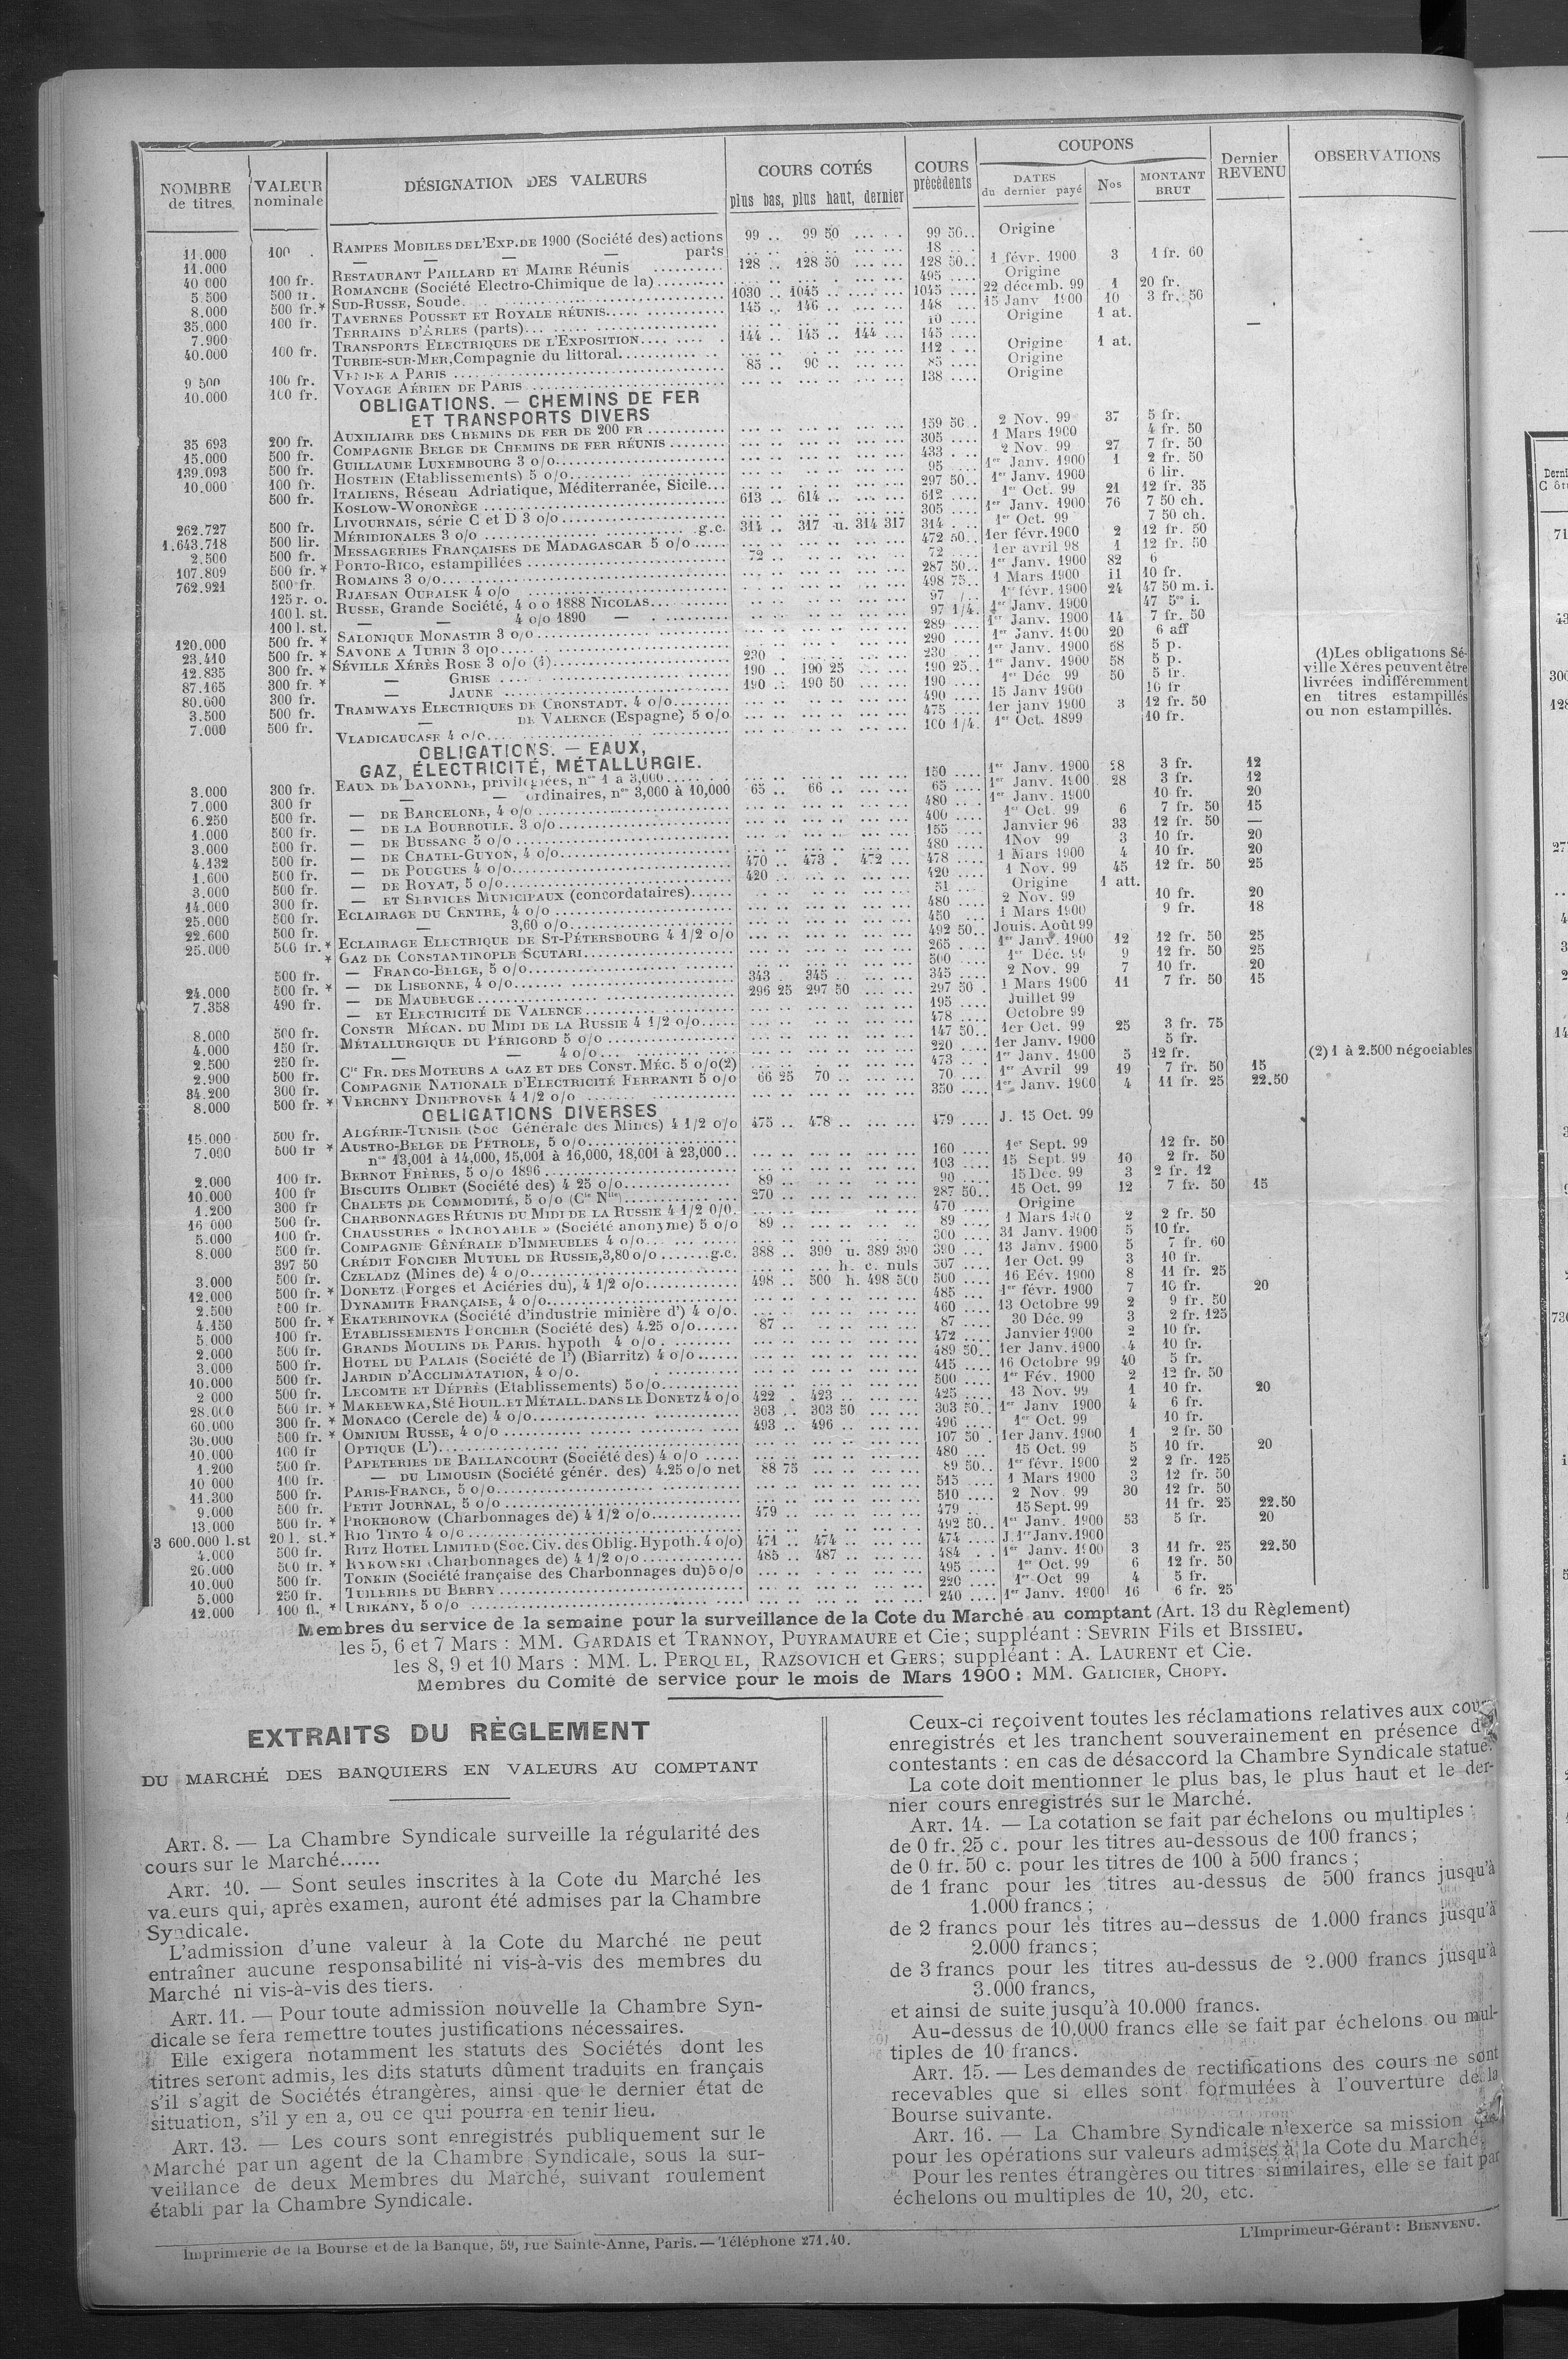 NOMBRE de titres VALEUR nominale DÉSIGNATION DES VALEURS COURS COTÉS plus bas, plus haut, dernier COURS précédents COUPONS DATES du dernier payé Nos MONTANT BRUT Dernier REVENU OBSERVATIONS
11.000 100 . RAMPES MOBILES DE L'EXP. DE 1900 (Société des) actions 99 .. 99 50 99 50 Origine
11.000 — — — — parts 18 ..
40 000 100 fr. RESTAURANT PAILLARD ET MAIRE Réunis 128 .. 128 50 128 50 1 févr. 1900 3 1 fr. 60
5.500 500 fr. ROMANCHE (Société Electro-Chimique de la) 495 Origine
8.000 500 fr.* SUD-RUSSE, Soude 1030 .. 1045 .. 1045 22 décemb. 99 1 20 fr.
35.000 100 fr. TAVERNES POUSSET ET ROYALE RÉUNIS 145 .. 146 .. 148 15 Janv 1900 10 3 fr. 50
7.900 TERRAINS D'ARLES (parts) 10 Origine 1 at.
40.000 100 fr. TRANSPORTS ELECTRIQUES DE L'EXPOSITION 144 .. 145 .. 144 145 —
TURBIE-SUR-MER, Compagnie du littoral 112 Origine 1 at.
9 500 100 fr. VENISE A PARIS 85 .. 90 .. 85 Origine
10.000 100 fr. VOYAGE AÉRIEN DE PARIS 138 Origine
OBLIGATIONS. — CHEMINS DE FER
ET TRANSPORTS DIVERS
35 693 200 fr. AUXILIAIRE DES CHEMINS DE FER DE 200 FR 159 50 2 Nov. 99 37 5 fr.
15.000 500 fr. COMPAGNIE BELGE DE CHEMINS DE FER RÉUNIS 305 1 Mars 1900 4 fr. 50
139.093 500 fr. GUILLAUME LUXEMBOURG 3 o/o 433 2 Nov. 99 27 7 fr. 50
10.000 100 fr. HOSTEIN (Etablissements) 5 o/o 95 1er Janv. 1900 1 2 fr. 50
500 fr. ITALIENS, Réseau Adriatique, Méditerranée, Sicile 297 50 1er Janv. 1900 6 lir.
KOSLOW-WORONÈGE 613 .. 614 .. 612 1er Oct. 99 21 12 fr. 35
262.727 500 fr. LIVOURNAIS, série C et D 3 o/o 305 1er Janv. 1900 76 7 50 ch.
1.643.718 500 lir. MÉRIDIONALES 3 o/o g.c. 314 .. 317 u. 314 317 314 1er Oct. 99 7 50 ch.
2.500 500 fr. MESSAGERIES FRANÇAISES DE MADAGASCAR 5 o/o 472 50 1er févr. 1900 2 12 fr. 50
107.809 500 fr.* PORTO-RICO, estampillées 72 .. 72 1er avril 98 1 12 fr. 50
762.921 500 fr ROMAINS 3 o/o 287 50 1er Janv. 1900 82 6
125 r. o. RJAESAN OURALSK 4 o/o 498 75 1 Mars 1900 11 10 fr.
100 l. st. RUSSE, Grande Société, 4 o o 1888 NICOLAS 97 1er févr. 1900 24 47 50 m. i.
100 l. st. — — 4 o/o 1890 — 97 1/4 1er Janv. 1900
120.000 500 fr. * SALONIQUE MONASTIR 3 o/o 289 1er Janv. 1900 14 7 fr. 50
23.410 500 fr. * SAVONE A TURIN 3 o/o 290 1er Janv. 1900 20 6 aff
12.835 300 fr. * SÉVILLE XÉRÈS ROSE 3 o/o (1) 230 .. 230 1er Janv. 1900 58 5 p.
87.165 300 fr. * — GRISE 190 .. 190 25 190 25 1er Janv. 1900 58 5 p.
80.000 300 fr. — JAUNE 190 .. 190 50 190 1er Déc 99 50 5 fr.
3.500 500 fr. TRAMWAYS ELECTRIQUES DE CRONSTADT. 4 o/o 490 15 Janv 1900 10 fr
7.000 500 fr. — DE VALENCE (Espagne) 5 o/o 475 1er janv 1900 3 12 fr. 50
VLADICAUCASE 4 o/o 100 1/4 1er Oct. 1899 10 fr.
(1) Les obligations Sé-
ville Xérès peuvent être
livrées indifféremment
en titres estampillés
ou non estampillés.
OBLIGATIONS. — EAUX,
GAZ, ÉLECTRICITÉ, MÉTALLURGIE.
3.000 300 fr. EAUX DE BAYONNE, privilégiées, nos 1 à 3,000 150 1er Janv. 1900 28 3 fr. 12
7.000 300 fr — — ordinaires, nos 3,000 à 10,000 65 .. 66 .. 65 1er Janv. 1900 28 3 fr. 12
6.250 500 fr. — DE BARCELONE, 4 o/o 480 1er Janv. 1900 10 fr. 20
1.000 500 fr. — DE LA BOURBOULE. 3 o/o 400 1er Oct. 99 6 7 fr. 50 15
3.000 500 fr. — DE BUSSANG 5 o/o 155 Janvier 96 33 12 fr. 50 —
4.132 500 fr. — DE CHATEL-GUYON, 4 o/o 480 1 Nov 99 3 10 fr. 20
1.600 500 fr. — DE POUGUES 4 o/o 470 .. 473 . 472 478 1 Mars 1900 4 10 fr. 20
3.000 500 fr. — DE ROYAT, 5 o/o 420 .. 420 1 Nov. 99 45 12 fr. 50 25
14.000 300 fr. — ET SERVICES MUNICIPAUX (concordataires) 51 Origine 1 att.
25.000 500 fr. ECLAIRAGE DU CENTRE, 4 o/o 480 2 Nov. 99 10 fr. 20
22.600 500 fr. — 3,60 o/o 450 1 Mars 1900 9 fr. 18
25.000 500 fr. * ECLAIRAGE ELECTRIQUE DE ST-PÉTERSBOURG 4 1/2 o/o 492 50 Jouis. Août 99
* GAZ DE CONSTANTINOPLE SCUTARI 265 1er Janv. 1900 12 12 fr. 50 25
500 fr. — FRANCO-BELGE, 5 o/o 500 1er Déc. 99 9 12 fr. 50 25
24.000 500 fr. * — DE LISBONNE, 4 o/o 343 . 345 .. 345 2 Nov. 99 7 10 fr. 20
7.358 490 fr. — DE MAUBEUGE 296 25 297 50 297 50 1 Mars 1900 11 7 fr. 50 15
— ET ELECTRICITÉ DE VALENCE 195 Juillet 99
8.000 500 fr. CONSTR MÉCAN. DU MIDI DE LA RUSSIE 4 1/2 o/o 478 Octobre 99
4.000 150 fr. MÉTALLURGIQUE DU PÉRIGORD 5 o/o 147 50 1er Oct. 99 25 3 fr. 75
2.500 250 fr. — — 4 o/o 220 1er Janv. 1900 5 fr.
2.900 500 fr. Cie FR. DES MOTEURS A GAZ ET DES CONST. MÉC. 5 o/o (2) 473 1er Janv. 1900 5 12 fr.
34.200 300 fr. COMPAGNIE NATIONALE D'ELECTRICITÉ FERRANTI 5 o/o 66 25 70 .. 70 1er Avril 99 19 7 fr. 50 15
8.000 500 fr. * VERCHNY DNIEPROVSK 4 1/2 o/o 350 1er Janv. 1900 4 11 fr. 25 22.50
(2) 1 à 2.500 négociables
OBLIGATIONS DIVERSES
15.000 500 fr. ALGÉRIE-TUNISIE (Soc Générale des Mines) 4 1/2 o/o 475 .. 478 .. 479 J. 15 Oct. 99
7.000 500 fr * AUSTRO-BELGE DE PÉTROLE, 5 o/o
nos 13,001 à 14,000, 15,001 à 16,000, 18,001 à 23,000 160 1er Sept. 99 12 fr. 50
2.000 100 fr. BERNOT FRÈRES, 5 o/o 1896 103 15 Sept. 99 10 2 fr. 50
10.000 100 fr BISCUITS OLIBET (Société des) 4 25 o/o 89 .. 90 15 Déc. 99 3 2 fr. 12
1.200 300 fr CHALETS DE COMMODITÉ, 5 o/o (Cie Nlle) 270 .. 287 50 15 Oct. 99 12 7 fr. 50 15
16 000 500 fr. CHARBONNAGES RÉUNIS DU MIDI DE LA RUSSIE 4 1/2 0/0. 470 Origine
5.000 100 fr. CHAUSSURES « INCROYABLE » (Société anonyme) 5 o/o 89 .. 89 1 Mars 1900 2 2 fr. 50
8.000 500 fr. COMPAGNIE GÉNÉRALE D'IMMEUBLES 4 o/o 300 31 Janv. 1900 5 10 fr.
397 50 CRÉDIT FONCIER MUTUEL DE RUSSIE, 3,80 o/o g.c. 388 .. 390 u. 389 390 390 13 Janv. 1900 5 7 fr. 60
3.000 500 fr. CZELADZ (Mines de) 4 o/o h. c. nuls 507 1er Oct. 99 3 10 fr.
12.000 500 fr. * DONETZ (Forges et Aciéries du), 4 1/2 o/o 498 .. 500 h. 498 500 500 16 Fév. 1900 8 11 fr. 25
2.500 500 fr. DYNAMITE FRANÇAISE, 4 o/o 485 1er févr. 1900 7 10 fr. 20
4.150 500 fr. * EKATERINOVKA (Société d'industrie minière d') 4 o/o. 460 13 Octobre 99 2 9 fr. 50
5.000 100 fr. ETABLISSEMENTS PORCHER (Société des) 4.25 o/o 87 .. 87 30 Déc. 99 3 2 fr. 125
2.000 500 fr. GRANDS MOULINS DE PARIS. hypoth 4 o/o 472 Janvier 1900 2 10 fr.
3.000 500 fr. HOTEL DU PALAIS (Société de l') (Biarritz) 4 o/o 489 50 1er Janv. 1900 4 10 fr.
10.000 500 fr. JARDIN D'ACCLIMATATION, 4 o/o. 415 16 Octobre 99 40 5 fr.
2 000 500 fr. LECOMTE ET DÉPRÈS (Etablissements) 5 o/o 500 1er Fév. 1900 2 12 fr. 50
28.000 500 fr. * MAKEEWKA, Sté HOUIL. ET MÉTALL. DANS LE DONETZ 4 o/o 422 . 423 .. 425 13 Nov. 99 1 10 fr. 20
60.000 300 fr. * MONACO (Cercle de) 4 o/o 303 .. 303 50 303 50 1er Janv 1900 4 6 fr.
30.000 500 fr. * OMNIUM RUSSE, 4 o/o 493 .. 496 .. 496 1er Oct. 99 10 fr.
10.000 100 fr OPTIQUE (L') 107 50 1er Janv. 1900 1 2 fr. 50
1.200 500 fr. PAPETERIES DE BALLANCOURT (Société des) 4 o/o 480 15 Oct. 99 5 10 fr. 20
10 000 100 fr. — DU LIMOUSIN (Société génér. des) 4.25 o/o net 88 75 89 50 1er févr. 1900 2 2 fr. 125
11.300 500 fr. PARIS-FRANCE, 5 o/o 515 1 Mars 1900 3 12 fr. 50
9.000 500 fr. PETIT JOURNAL, 5 o/o 510 2 Nov. 99 30 12 fr. 50
13.000 500 fr. * PROKHOROW (Charbonnages de) 4 1/2 o/o 479 .. 479 15 Sept. 99 11 fr. 25 22.50
3 600.000 l.st 20 l. st.* RIO TINTO 4 o/o 492 50 1er Janv. 1900 53 5 fr. 20
4.000 500 fr. RITZ HOTEL LIMITED (Soc. Civ. des Oblig. Hypoth. 4 o/o) 471 .. 474 .. 474 J. 1er Janv. 1900
26.000 500 fr. * RYKOWSKI (Charbonnages de) 4 1/2 o/o 485 .. 487 .. 484 1er Janv. 1900 3 11 fr. 25 22.50
10.000 500 fr. TONKIN (Société française des Charbonnages du) 5 o/o 495 1er Oct. 99 6 12 fr. 50
5.000 250 fr. TUILERIES DU BERRY 220 1er Oct 99 4 5 fr.
12.000 100 fl. * URIKANY, 5 o/o 240 1er Janv. 1900 16 6 fr. 25
Membres du service de la semaine pour la surveillance de la Cote du Marché au comptant (Art. 13 du Règlement)
les 5, 6 et 7 Mars : MM. GARDAIS et TRANNOY, PUYRAMAURE et Cie ; suppléant : SEVRIN Fils et BISSIEU.
les 8, 9 et 10 Mars : MM. L. PERQUEL, RAZSOVICH et GERS ; suppléant : A. LAURENT et Cie.
Membres du Comité de service pour le mois de Mars 1900 : MM. GALICIER, CHOPY.
EXTRAITS DU RÈGLEMENT
DU MARCHÉ DES BANQUIERS EN VALEURS AU COMPTANT
ART. 8. — La Chambre Syndicale surveille la régularité des
cours sur le Marché......
ART. 10. — Sont seules inscrites à la Cote du Marché les
valeurs qui, après examen, auront été admises par la Chambre
Syndicale.
L'admission d'une valeur à la Cote du Marché ne peut
entraîner aucune responsabilité ni vis-à-vis des membres du
Marché ni vis-à-vis des tiers.
ART. 11. — Pour toute admission nouvelle la Chambre Syn-
dicale se fera remettre toutes justifications nécessaires.
Elle exigera notamment les statuts des Sociétés dont les
titres seront admis, les dits statuts dûment traduits en français
s'il s'agit de Sociétés étrangères, ainsi que le dernier état de
situation, s'il y en a, ou ce qui pourra en tenir lieu.
ART. 13. — Les cours sont enregistrés publiquement sur le
Marché par un agent de la Chambre Syndicale, sous la sur-
veillance de deux Membres du Marché, suivant roulement
établi par la Chambre Syndicale.
Ceux-ci reçoivent toutes les réclamations relatives aux cours
enregistrés et les tranchent souverainement en présence des
contestants : en cas de désaccord la Chambre Syndicale statue.
La cote doit mentionner le plus bas, le plus haut et le der-
nier cours enregistrés sur le Marché.
ART. 14. — La cotation se fait par échelons ou multiples :
de 0 fr. 25 c. pour les titres au-dessous de 100 francs ;
de 0 fr. 50 c. pour les titres de 100 à 500 francs ;
de 1 franc pour les titres au-dessus de 500 francs jusqu'à
1.000 francs ;
de 2 francs pour les titres au-dessus de 1.000 francs jusqu'à
2.000 francs ;
de 3 francs pour les titres au-dessus de 2.000 francs jusqu'à
3.000 francs,
et ainsi de suite jusqu'à 10.000 francs.
Au-dessus de 10.000 francs elle se fait par échelons ou mul-
tiples de 10 francs.
ART. 15. — Les demandes de rectifications des cours ne sont
recevables que si elles sont formulées à l'ouverture de la
Bourse suivante.
ART. 16. — La Chambre Syndicale n'exerce sa mission que
pour les opérations sur valeurs admises à la Cote du Marché.
Pour les rentes étrangères ou titres similaires, elle se fait par
échelons ou multiples de 10, 20, etc.
Imprimerie de la Bourse et de la Banque, 59, rue Sainte-Anne, Paris. — Téléphone 271.40.
L'Imprimeur-Gérant : BIENVENU.